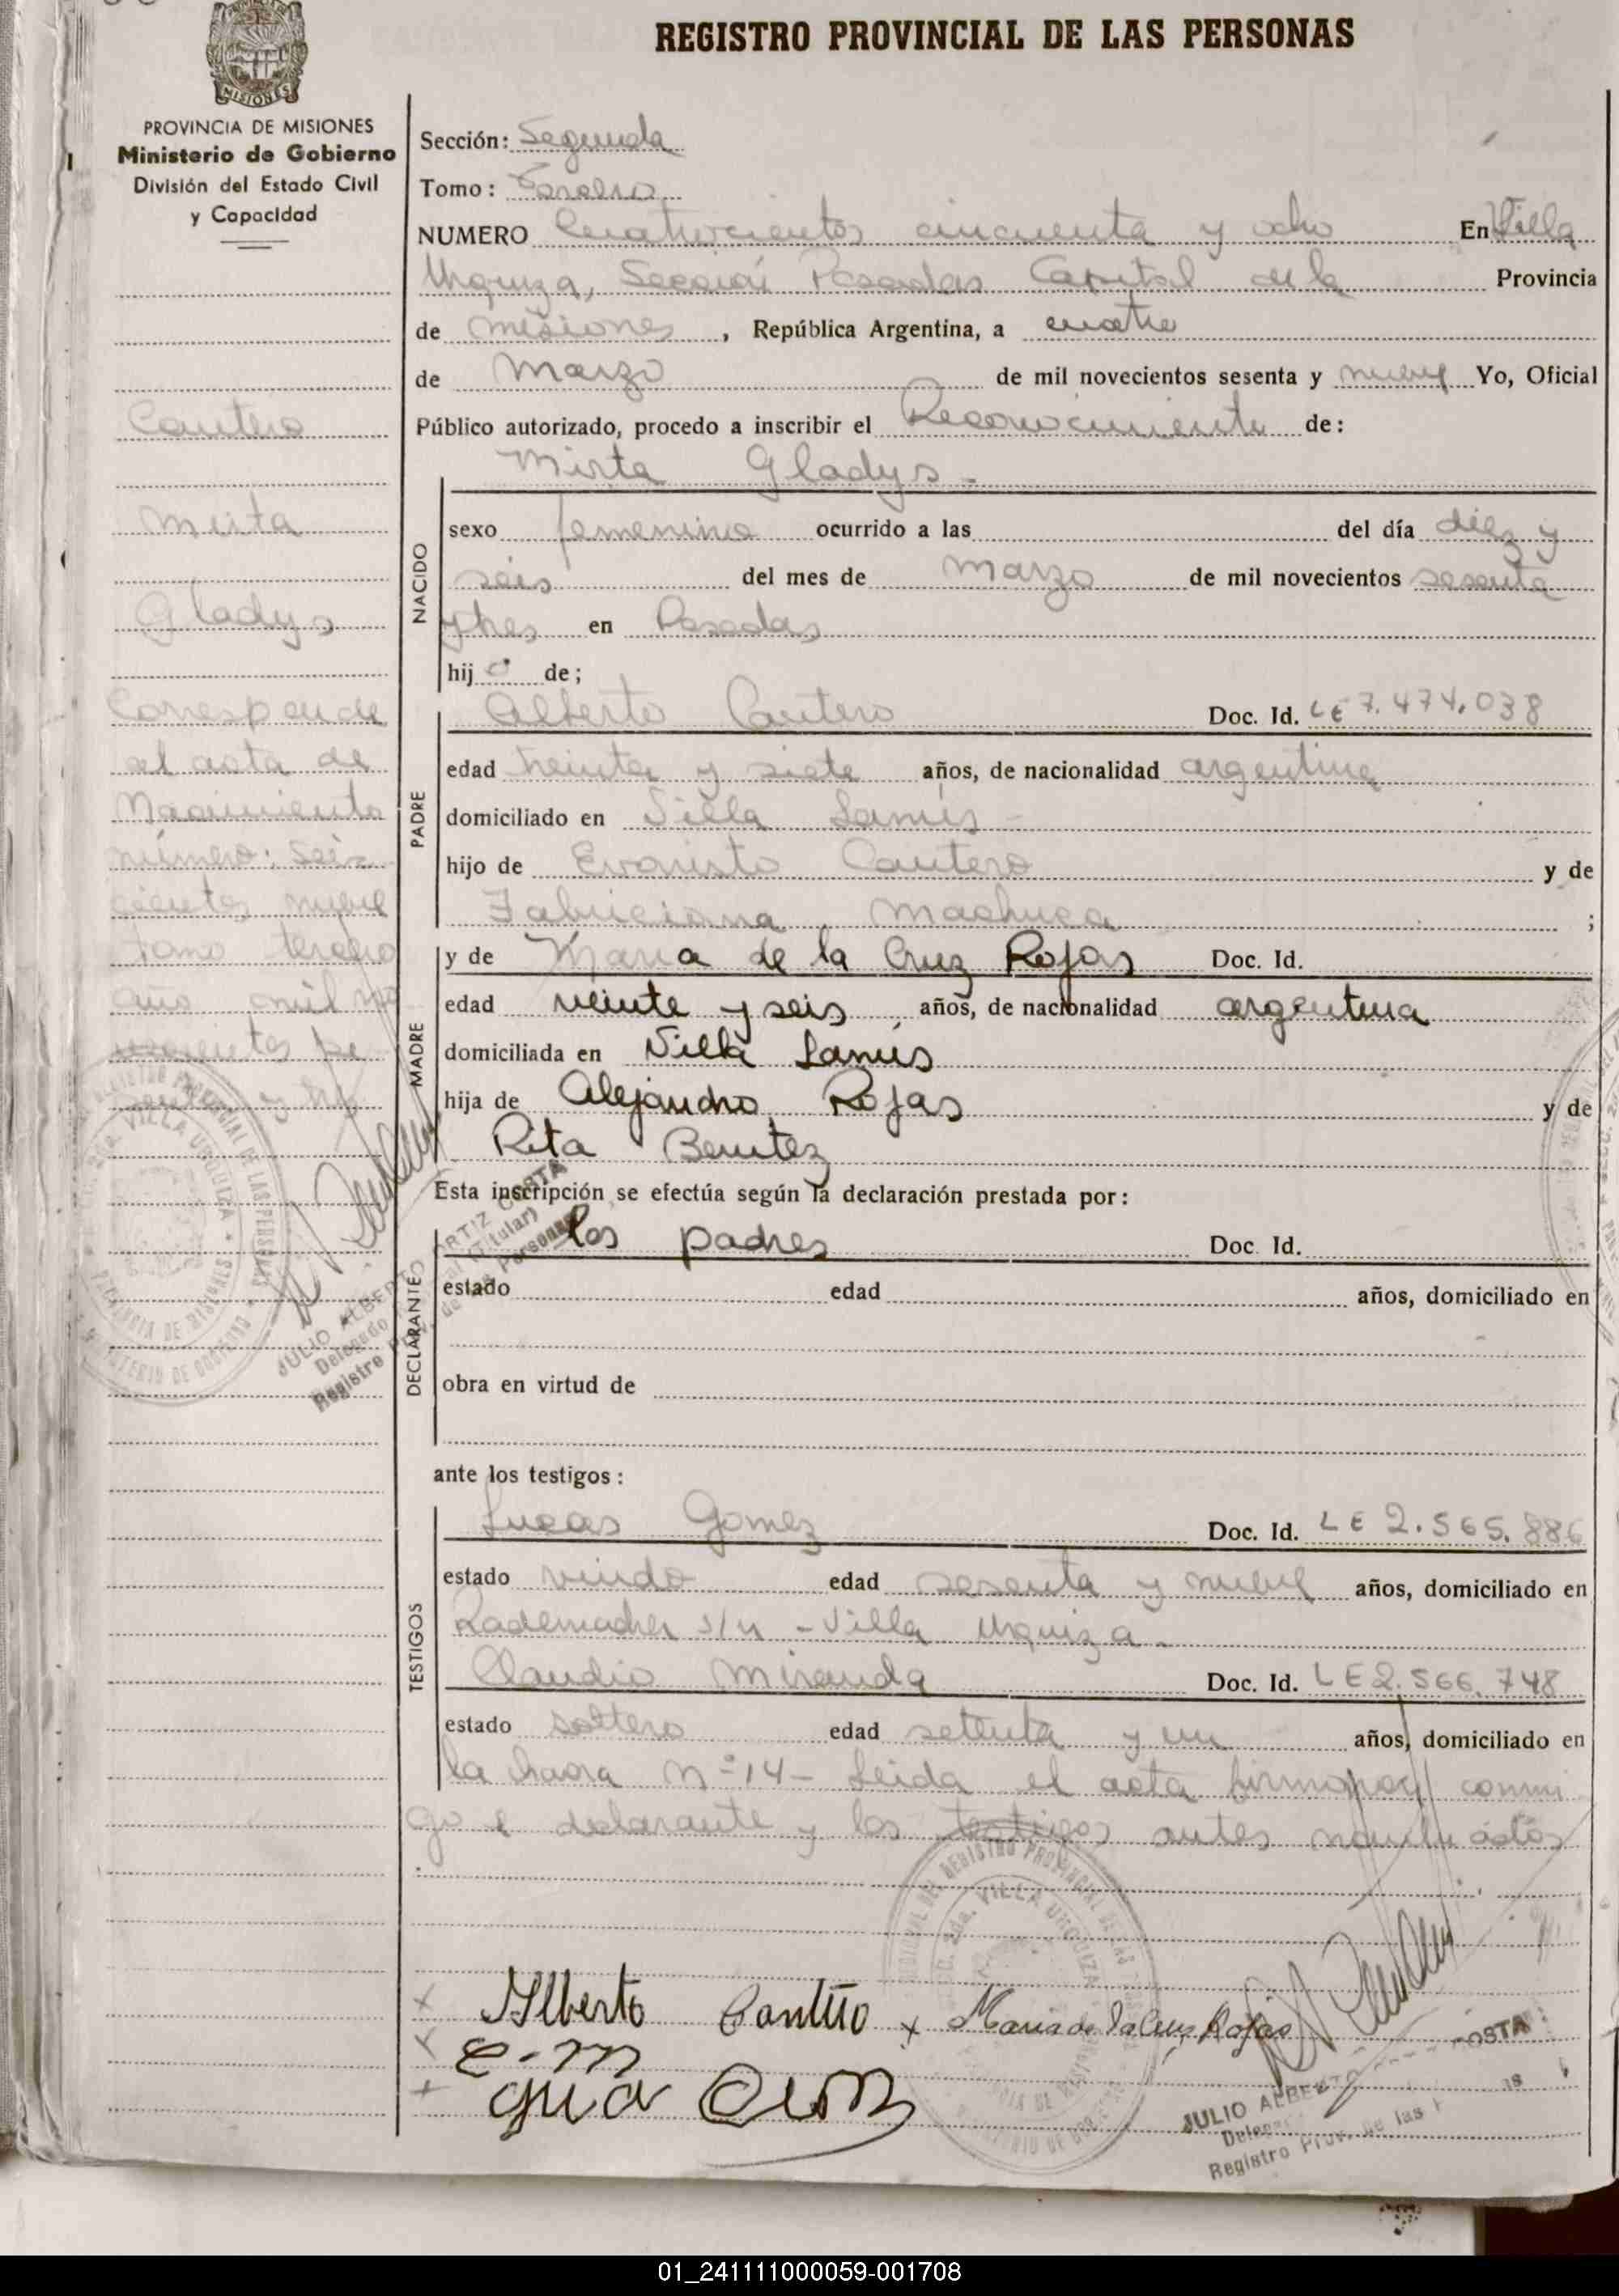 REGISTRO PROVINCIAL DE LAS PERSONAS
MISIONES
PROVINCIA DE MISIONES
Ministerio de Gobierno
División del Estado Civil
y Capacidad
Cantero
Mirta
Gladys
Corresponde
al acta de
Nacimiento
número: Seis
cientos nueve
tomo tercero
año mil no
vecientos se
senta y tres
Sección: Segunda
Tomo: Tercero
NUMERO Cuatrocientos cincuenta y ocho En Villa
Urquiza, Sección Posadas Capital de la Provincia
de Misiones, República Argentina, a cuatro
de Marzo de mil novecientos sesenta y nueve Yo, Oficial
Público autorizado, procedo a inscribir el Reconocimiento de:
Mirta Gladys -
NACIDO
sexo femenino ocurrido a las del día diez y
seis del mes de Marzo de mil novecientos sesenta
y tres en Posadas
hij a de;
PADRE
Alberto Cantero Doc. Id. LE 7.474.038
edad treinta y siete años, de nacionalidad argentina
domiciliado en Villa Lanús -
hijo de Evaristo Cantero y de
Fabriciana Machuca ;
MADRE
y de Maria de la Cruz Rojas Doc. Id.
edad veinte y seis, años, de nacionalidad argentina
domiciliada en Villa Lanús
hija de Alejandro Rojas y de
Rita Benitez
Esta inscripción se efectúa según la declaración prestada por:
DECLARANTE
los padres Doc. Id.
estado edad años, domiciliado en
obra en virtud de
ante los testigos:
TESTIGOS
Lucas Gomez Doc. Id. LE 2.565.886
estado viudo edad sesenta y nueve años, domiciliado en
Rademacher s/n - Villa Urquiza -
Claudio Miranda Doc. Id. LE 2.566.748
estado soltero edad setenta y un años, domiciliado en
la chacra n° 14 - Leida el acta firman conmi
go el declarante y los testigos antes
x Alberto Cantero x Maria de la Cruz Rojas
JULIO ALBERTO ORTIZ COSTA
Delegado (Titular)
Registro Prov. de las Personas
JULIO ALBERTO COSTA
Registro Prov. de las
01_241111000059-001708